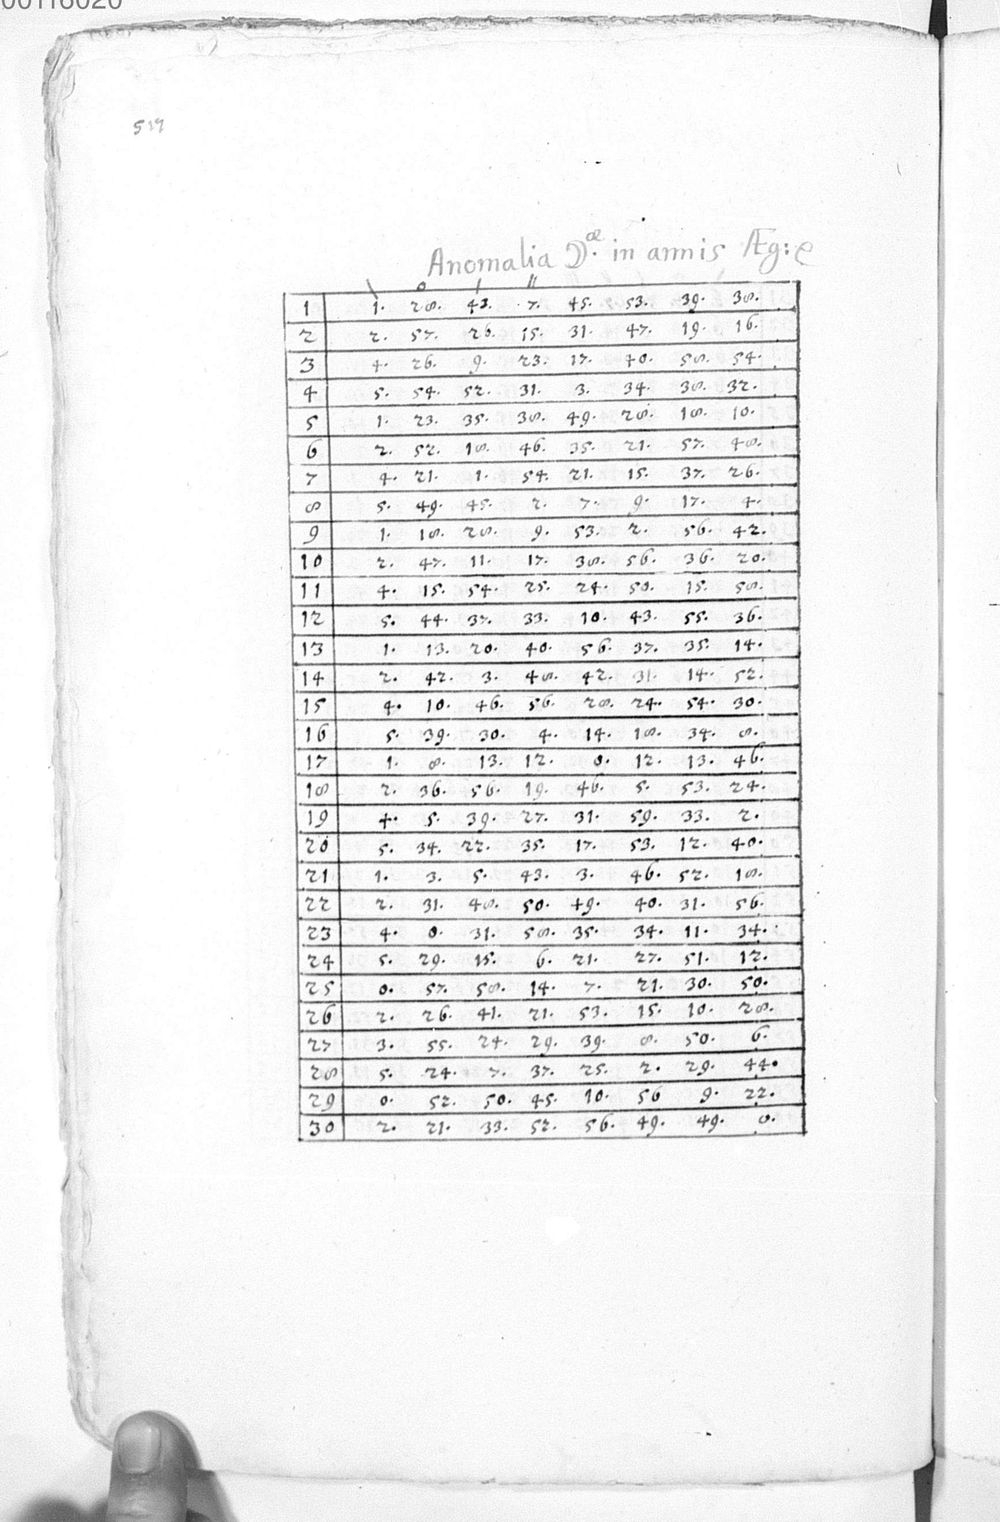 00116020
517
Anomalia ☽æ. in annis Æg: e
\ o / //
1 1. 28. 43. 7. 45. 53. 39. 38.
2 2. 57. 26. 15. 31. 47. 19. 16.
3 4. 26. 9. 23. 17. 40. 58. 54.
4 5. 54. 52. 31. 3. 34. 38. 32.
5 1. 23. 35. 38. 49. 28. 18. 10.
6 2. 52. 18. 46. 35. 21. 57. 48.
7 4. 21. 1. 54. 21. 15. 37. 26.
8 5. 49. 45. 2. 7. 9. 17. 4.
9 1. 18. 28. 9. 53. 2. 56. 42.
10 2. 47. 11. 17. 38. 56. 36. 20.
11 4. 15. 54. 25. 24. 50. 15. 58.
12 5. 44. 37. 33. 10. 43. 55. 36.
13 1. 13. 20. 40. 56. 37. 35. 14.
14 2. 42. 3. 48. 42. 31. 14. 52.
15 4. 10. 46. 56. 28. 24. 54. 30.
16 5. 39. 30. 4. 14. 18. 34. 8.
17 1. 8. 13. 12. 0. 12. 13. 46.
18 2. 36. 56. 19. 46. 5. 53. 24.
19 4. 5. 39. 27. 31. 59. 33. 2.
20 5. 34. 22. 35. 17. 53. 12. 40.
21 1. 3. 5. 43. 3. 46. 52. 18.
22 2. 31. 48. 50. 49. 40. 31. 56.
23 4. 0. 31. 58. 35. 34. 11. 34.
24 5. 29. 15. 6. 21. 27. 51. 12.
25 0. 57. 58. 14. 7. 21. 30. 50.
26 2. 26. 41. 21. 53. 15. 10. 28.
27 3. 55. 24. 29. 39. 8. 50. 6.
28 5. 24. 7. 37. 25. 2. 29. 44.
29 0. 52. 50. 45. 10. 56 9. 22.
30 2. 21. 33. 52. 56. 49. 49. 0.